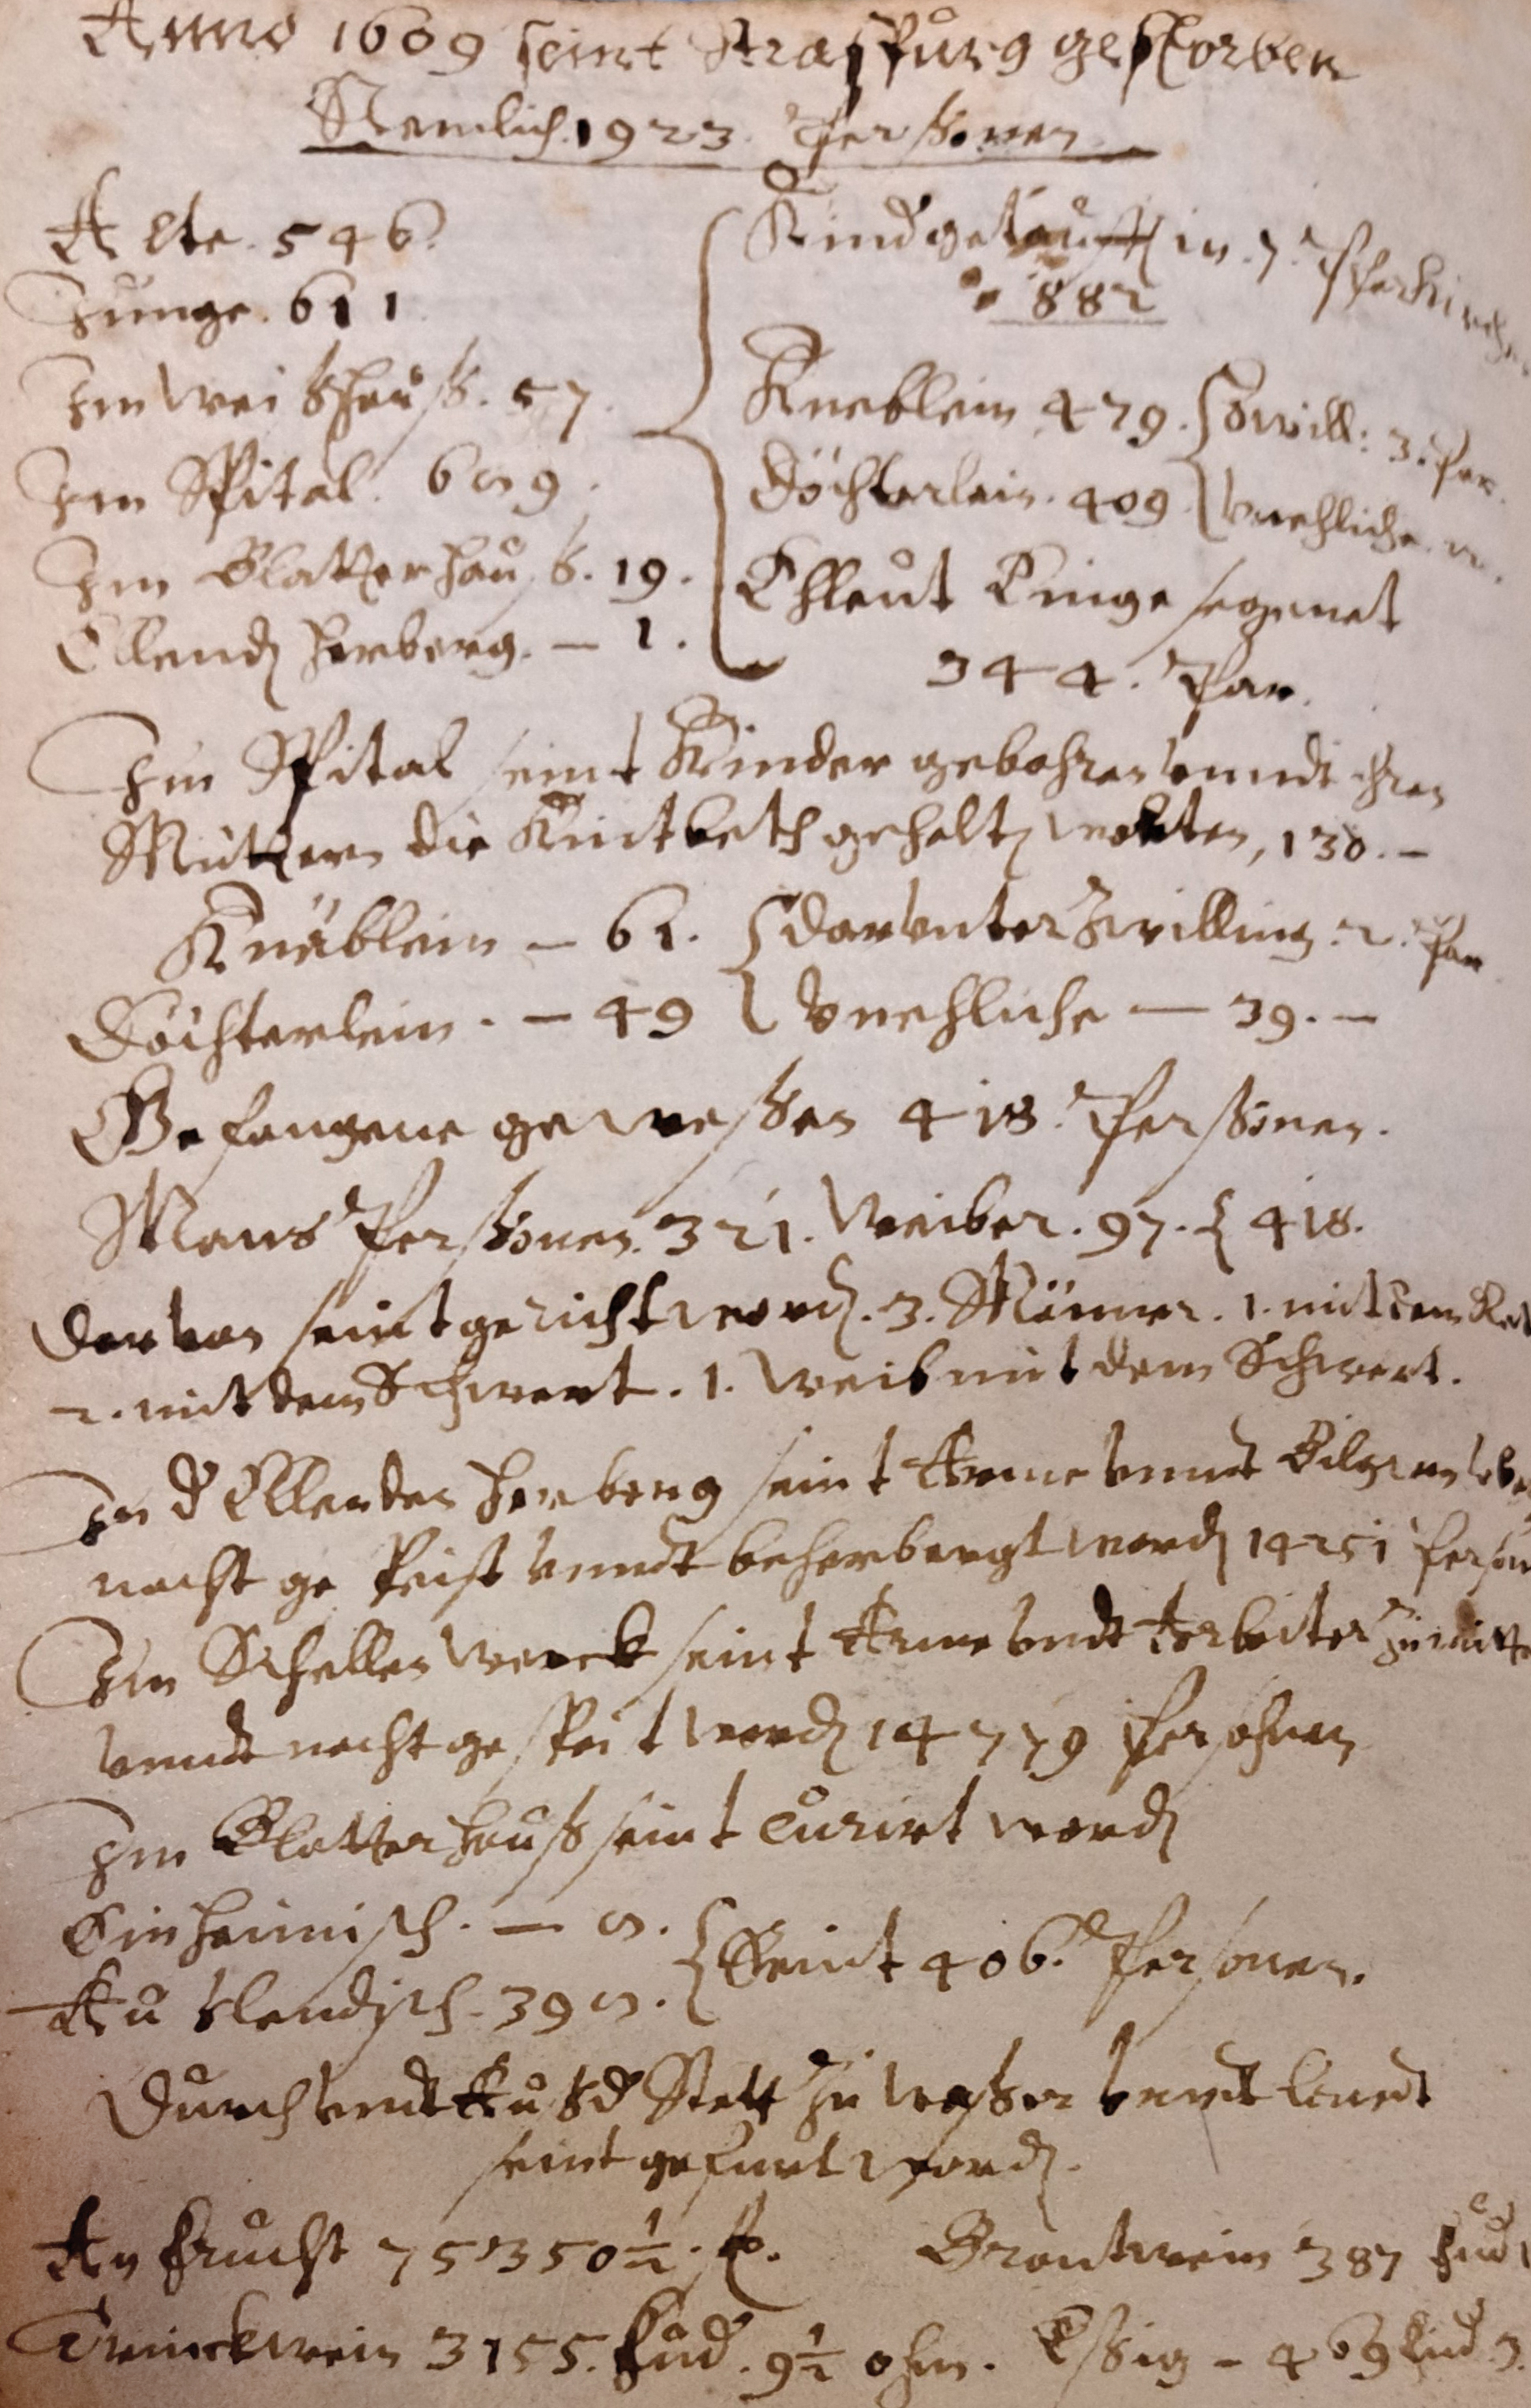 Anno 1609 seint Straßpurg gestorben
Nemlich 1923. Perssonen
Alte. 546.
Junge. 611
Im weißhauß. 57.
Im Spital. 689.
Im Blatterhauß. 19.
Ellend Herberg. — 1.
Kind getaufft in. 7. Pfarkirchen
882
Kneblein 479. Zwill: 3. Par.
Döchterlein. 409 Unehliche
Ehleut Einge segenet
344. Par.
Im Spital seint Kinder gebohren vnndt ihren
Müttern die Kintbeth gehalten worten, 130. —
Knäblein — 61. darunter Zwilling. 2. Par
Döchterlein. — 49 Vnehliche — 39. —
Gefangene gewessen 418. Perssonen.
Mans Perssonen. 321. Weiber. 97. 418.
Darvon seint gericht word. 3. Männer. 1. mit dem
2. mit dem Schwert. 1. Weib mit dem Schwert.
In d Ellenden Herberg seint Arme vnndt Bilger
nacht gespeist vnndt beherbergt word 14251 Person
Im Schellen werck seint Arme vndt Arbeiter zu
vnndt nacht gespeist word 14779 Persohnen
Im Blatter Hauß seint Curirt word
Einheimisch. — 8. Seint 406. Personen.
Außlendisch. 398.
Durch vndt Auß d Statt zu wasser vnndt landt
seint gefurt word.
An Frucht 75350½. fl. Brantwein 387 Fud
Trinckwein 3155. Fud. 9½ ohm. Essig — 469 Fud 3.